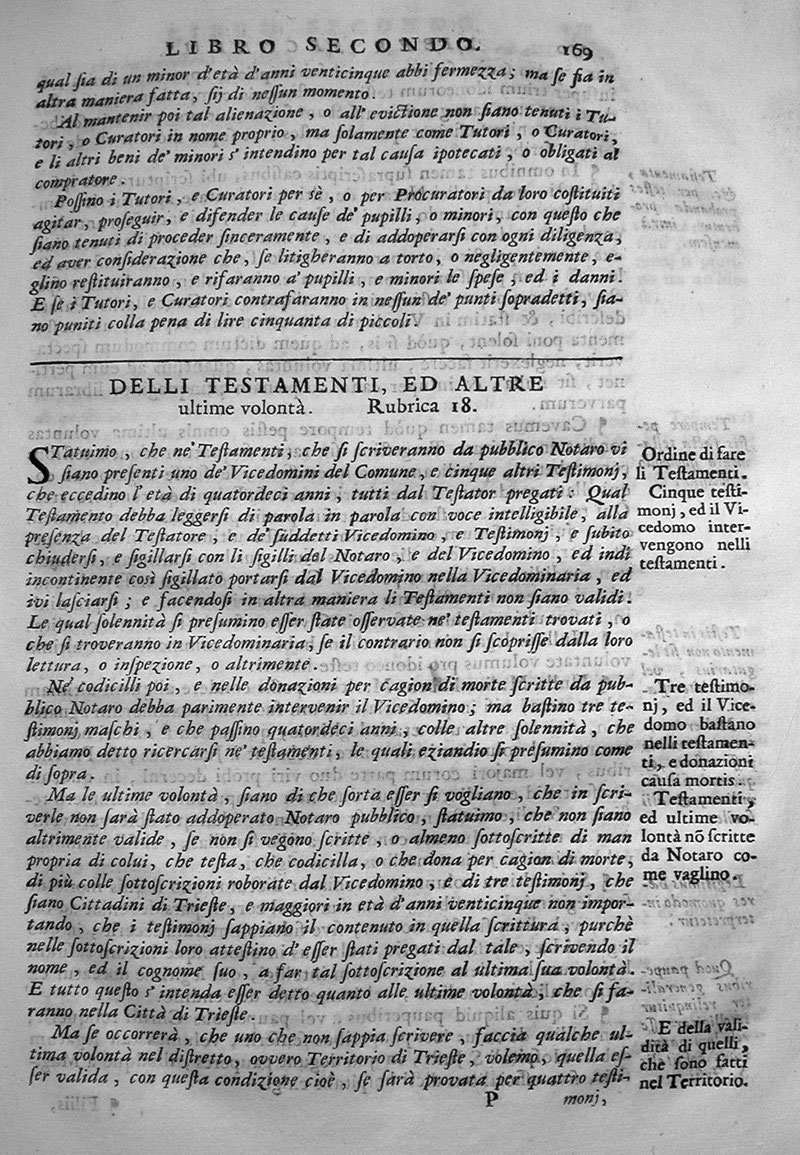 LIBRO SECONDO.
169
qual ſia di un minor d'età d'anni venticinque abbi fermezza; ma ſe ſia in
altra maniera fatta, ſij di neſſun momento.
Al mantenir poi tal alienazione, o all' evictione non ſiano tenuti i Tu-
tori, o Curatori in nome proprio, ma ſolamente come Tutori, o Curatori,
e li altri beni de' minori s' intendino per tal cauſa ipotecati, o obligati al
compratore.
Poſſino i Tutori, e Curatori per sè, o per Procuratori da loro coſtituiti
agitar, proſeguir, e difender le cauſe de' pupilli, o minori, con queſto che
ſiano tenuti di proceder ſinceramente, e di addoperarſi con ogni diligenza,
ed aver conſiderazione che, ſe litigheranno a torto, o negligentemente, e-
glino reſtituiranno, e rifaranno a' pupilli, e minori le ſpeſe, ed i danni.
E ſe i Tutori, e Curatori contrafaranno in neſſun de' punti ſopradetti, ſia-
no puniti colla pena di lire cinquanta di piccoli.
DELLI TESTAMENTI, ED ALTRE
ultime volontà. Rubrica 18.
STatuimo, che ne' Teſtamenti, che ſi ſcriveranno da pubblico Notaro vi
ſiano preſenti uno de' Vicedomini del Comune, e cinque altri Teſtimonj,
che eccedino l' età di quatordeci anni, tutti dal Teſtator pregati: Qual
Teſtamento debba leggerſi di parola in parola con voce intelligibile, alla
preſenza del Teſtatore, e de' ſuddetti Vicedomino, e Teſtimonj, e ſubito
chiuderſi, e ſigillarſi con li ſigilli del Notaro, e del Vicedomino, ed indi
incontinente così ſigillato portarſi dal Vicedomino nella Vicedominaria, ed
ivi laſciarſi; e facendoſi in altra maniera li Teſtamenti non ſiano validi.
Le qual ſolennità ſi preſumino eſſer ſtate oſſervate ne' teſtamenti trovati, o
che ſi troveranno in Vicedominaria, ſe il contrario non ſi ſcopriſſe dalla loro
lettura, o inſpezione, o altrimente.
Ne' codicilli poi, e nelle donazioni per cagion di morte ſcritte da pub-
blico Notaro debba parimente intervenir il Vicedomino; ma baſtino tre te-
ſtimonj maſchi, e che paſſino quatordeci anni, colle altre ſolennità, che
abbiamo detto ricercarſi ne' teſtamenti, le quali eziandio ſi preſumino come
di ſopra.
Ma le ultime volontà, ſiano di che ſorta eſſer ſi vogliano, che in ſcri-
verle non ſarà ſtato addoperato Notaro pubblico, ſtatuimo, che non ſiano
altrimente valide, ſe non ſi vegono ſcritte, o almeno ſottoſcritte di man
propria di colui, che teſta, che codicilla, o che dona per cagion di morte,
di più colle ſottoſcrizioni roborate dal Vicedomino, e di tre teſtimonj, che
ſiano Cittadini di Trieſte, e maggiori in età d'anni venticinque non impor-
tando, che i teſtimonj ſappiano il contenuto in quella ſcrittura, purchè
nelle ſottoſcrizioni loro atteſtino d' eſſer ſtati pregati dal tale, ſcrivendo il
nome, ed il cognome ſuo, a far tal ſottoſcrizione al ultima ſua volontà.
E tutto queſto s' intenda eſſer detto quanto alle ultime volontà, che ſi fa-
ranno nella Città di Trieſte.
Ma ſe occorrerà, che uno che non ſappia ſcrivere, faccia qualche ul-
tima volontà nel diſtretto, ovvero Territorio di Trieſte, volemo, quella eſ-
ſer valida, con queſta condizione cioè, ſe ſarà provata per quattro teſti-
P monj,
Ordine di fare
li Teſtamenti.
Cinque teſti-
monj, ed il Vi-
cedomo inter-
vengono nelli
teſtamenti.
Tre teſtimo-
nj, ed il Vice-
domo baſtano
nelli teſtamen-
ti, e donazioni
cauſa mortis.
Teſtamenti,
ed ultime vo-
lontà nō ſcritte
da Notaro co-
me vaglino.
E della vali-
dità di quelli,
che ſono fatti
nel Territorio.